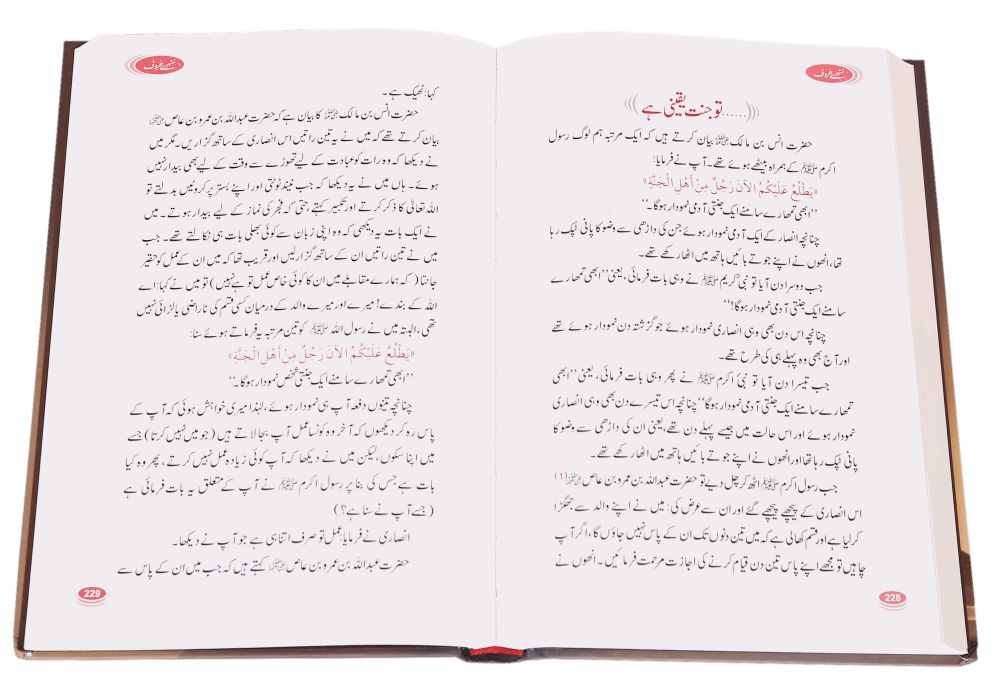 سنہرے حروف
......تو جنت یقینی ہے
حضرت انس بن مالک ﷜ بیان کرتے ہیں کہ ایک مرتبہ ہم لوگ رسول
اکرم ﷺ کے ہمراہ بیٹھے ہوئے تھے۔ آپ نے فرمایا:
«يَطْلُعُ عَلَيْكُمُ الآنَ رَجُلٌ مِنْ أَهْلِ الْجَنَّةِ»
’’ابھی تمھارے سامنے ایک جنتی آدمی نمودار ہوگا۔‘‘
چنانچہ انصار کے ایک آدمی نمودار ہوئے جن کی داڑھی سے وضو کا پانی ٹپک رہا
تھا، انھوں نے اپنے جوتے بائیں ہاتھ میں اٹھا رکھے تھے۔
جب دوسرا دن آیا تو نبیٔ کریم ﷺ نے وہی بات فرمائی، یعنی ’’ابھی تمھارے
سامنے ایک جنتی آدمی نمودار ہوگا!‘‘
چنانچہ اس دن بھی وہی انصاری نمودار ہوئے جو گزشتہ دن نمودار ہوئے تھے
اور آج بھی وہ پہلے ہی کی طرح تھے۔
جب تیسرا دن آیا تو نبیٔ اکرم ﷺ نے پھر وہی بات فرمائی، یعنی ’’ابھی
تمھارے سامنے ایک جنتی آدمی نمودار ہوگا‘‘ چنانچہ اس تیسرے دن بھی وہی انصاری
نمودار ہوئے اور اس حالت میں جیسے پہلے دن تھے، یعنی ان کی داڑھی سے وضو کا
پانی ٹپک رہا تھا اور انھوں نے اپنے جوتے بائیں ہاتھ میں اٹھا رکھے تھے۔
جب رسول اکرم ﷺ اٹھ کر چل دیے تو حضرت عبداللہ بن عمرو بن عاص ﷠ (1)
اس انصاری کے پیچھے پیچھے گئے اور ان سے عرض کی: میں نے اپنے والد سے جھگڑا
کر لیا ہے اور قسم کھالی ہے کہ میں تین دنوں تک ان کے پاس نہیں جاؤں گا، اگر آپ
چاہیں تو مجھے اپنے پاس تین دن قیام کرنے کی اجازت مرحمت فرمائیں۔ انھوں نے
228
سنہرے حروف
کہا: ٹھیک ہے۔
حضرت انس بن مالک ﷜ کا بیان ہے کہ حضرت عبداللہ بن عمرو بن عاص ﷠
بیان کرتے تھے کہ میں نے یہ تین راتیں اس انصاری کے ساتھ گزاریں۔ مگر میں
نے دیکھا کہ وہ رات کو عبادت کے لیے تھوڑے سے وقت کے لیے بھی بیدار نہیں
ہوئے۔ ہاں میں نے یہ دیکھا کہ جب نیند ٹوٹتی اور اپنے بستر پر کروٹیں بدلتے تو
اللہ تعالیٰ کا ذکر کرتے اور تکبیر کہتے حتی کہ فجر کی نماز کے لیے بیدار ہوتے۔ میں
نے ایک بات یہ دیکھی کہ وہ اپنی زبان سے کوئی بھلی بات ہی نکالتے تھے۔ جب
میں نے تین راتیں ان کے ساتھ گزار لیں اور قریب تھا کہ میں ان کے عمل کو حقیر
جانتا (کہ ہمارے مقابلے میں ان کا کوئی خاص عمل تو ہے نہیں) تو میں نے کہا: اے
اللہ کے بندے! میرے اور میرے والد کے درمیان کسی قسم کی ناراضی یا لڑائی نہیں
تھی، البتہ میں نے رسول اللہ ﷺ کو تین مرتبہ یہ فرماتے ہوئے سنا:
«يَطْلُعُ عَلَيْكُمُ الآنَ رَجُلٌ مِنْ أَهْلِ الْجَنَّةِ»
’’ابھی تمھارے سامنے ایک جنتی شخص نمودار ہوگا۔‘‘
چنانچہ تینوں دفعہ آپ ہی نمودار ہوئے، لہٰذا میری خواہش ہوئی کہ آپ کے
پاس رہ کر دیکھوں کہ آخر وہ کونسا عمل آپ بجالاتے ہیں (جو میں نہیں کرتا) جسے
میں اپنا سکوں، لیکن میں نے دیکھا کہ آپ کوئی زیادہ عمل نہیں کرتے، پھر وہ کیا
بات ہے جس کی بنا پر رسول اکرم ﷺ نے آپ کے متعلق یہ بات فرمائی ہے
(جسے آپ نے سنا ہے؟)
انصاری نے فرمایا: عمل تو صرف اتنا ہی ہے جو آپ نے دیکھا۔
حضرت عبداللہ بن عمرو بن عاص ﷠ کہتے ہیں کہ جب میں ان کے پاس سے
229